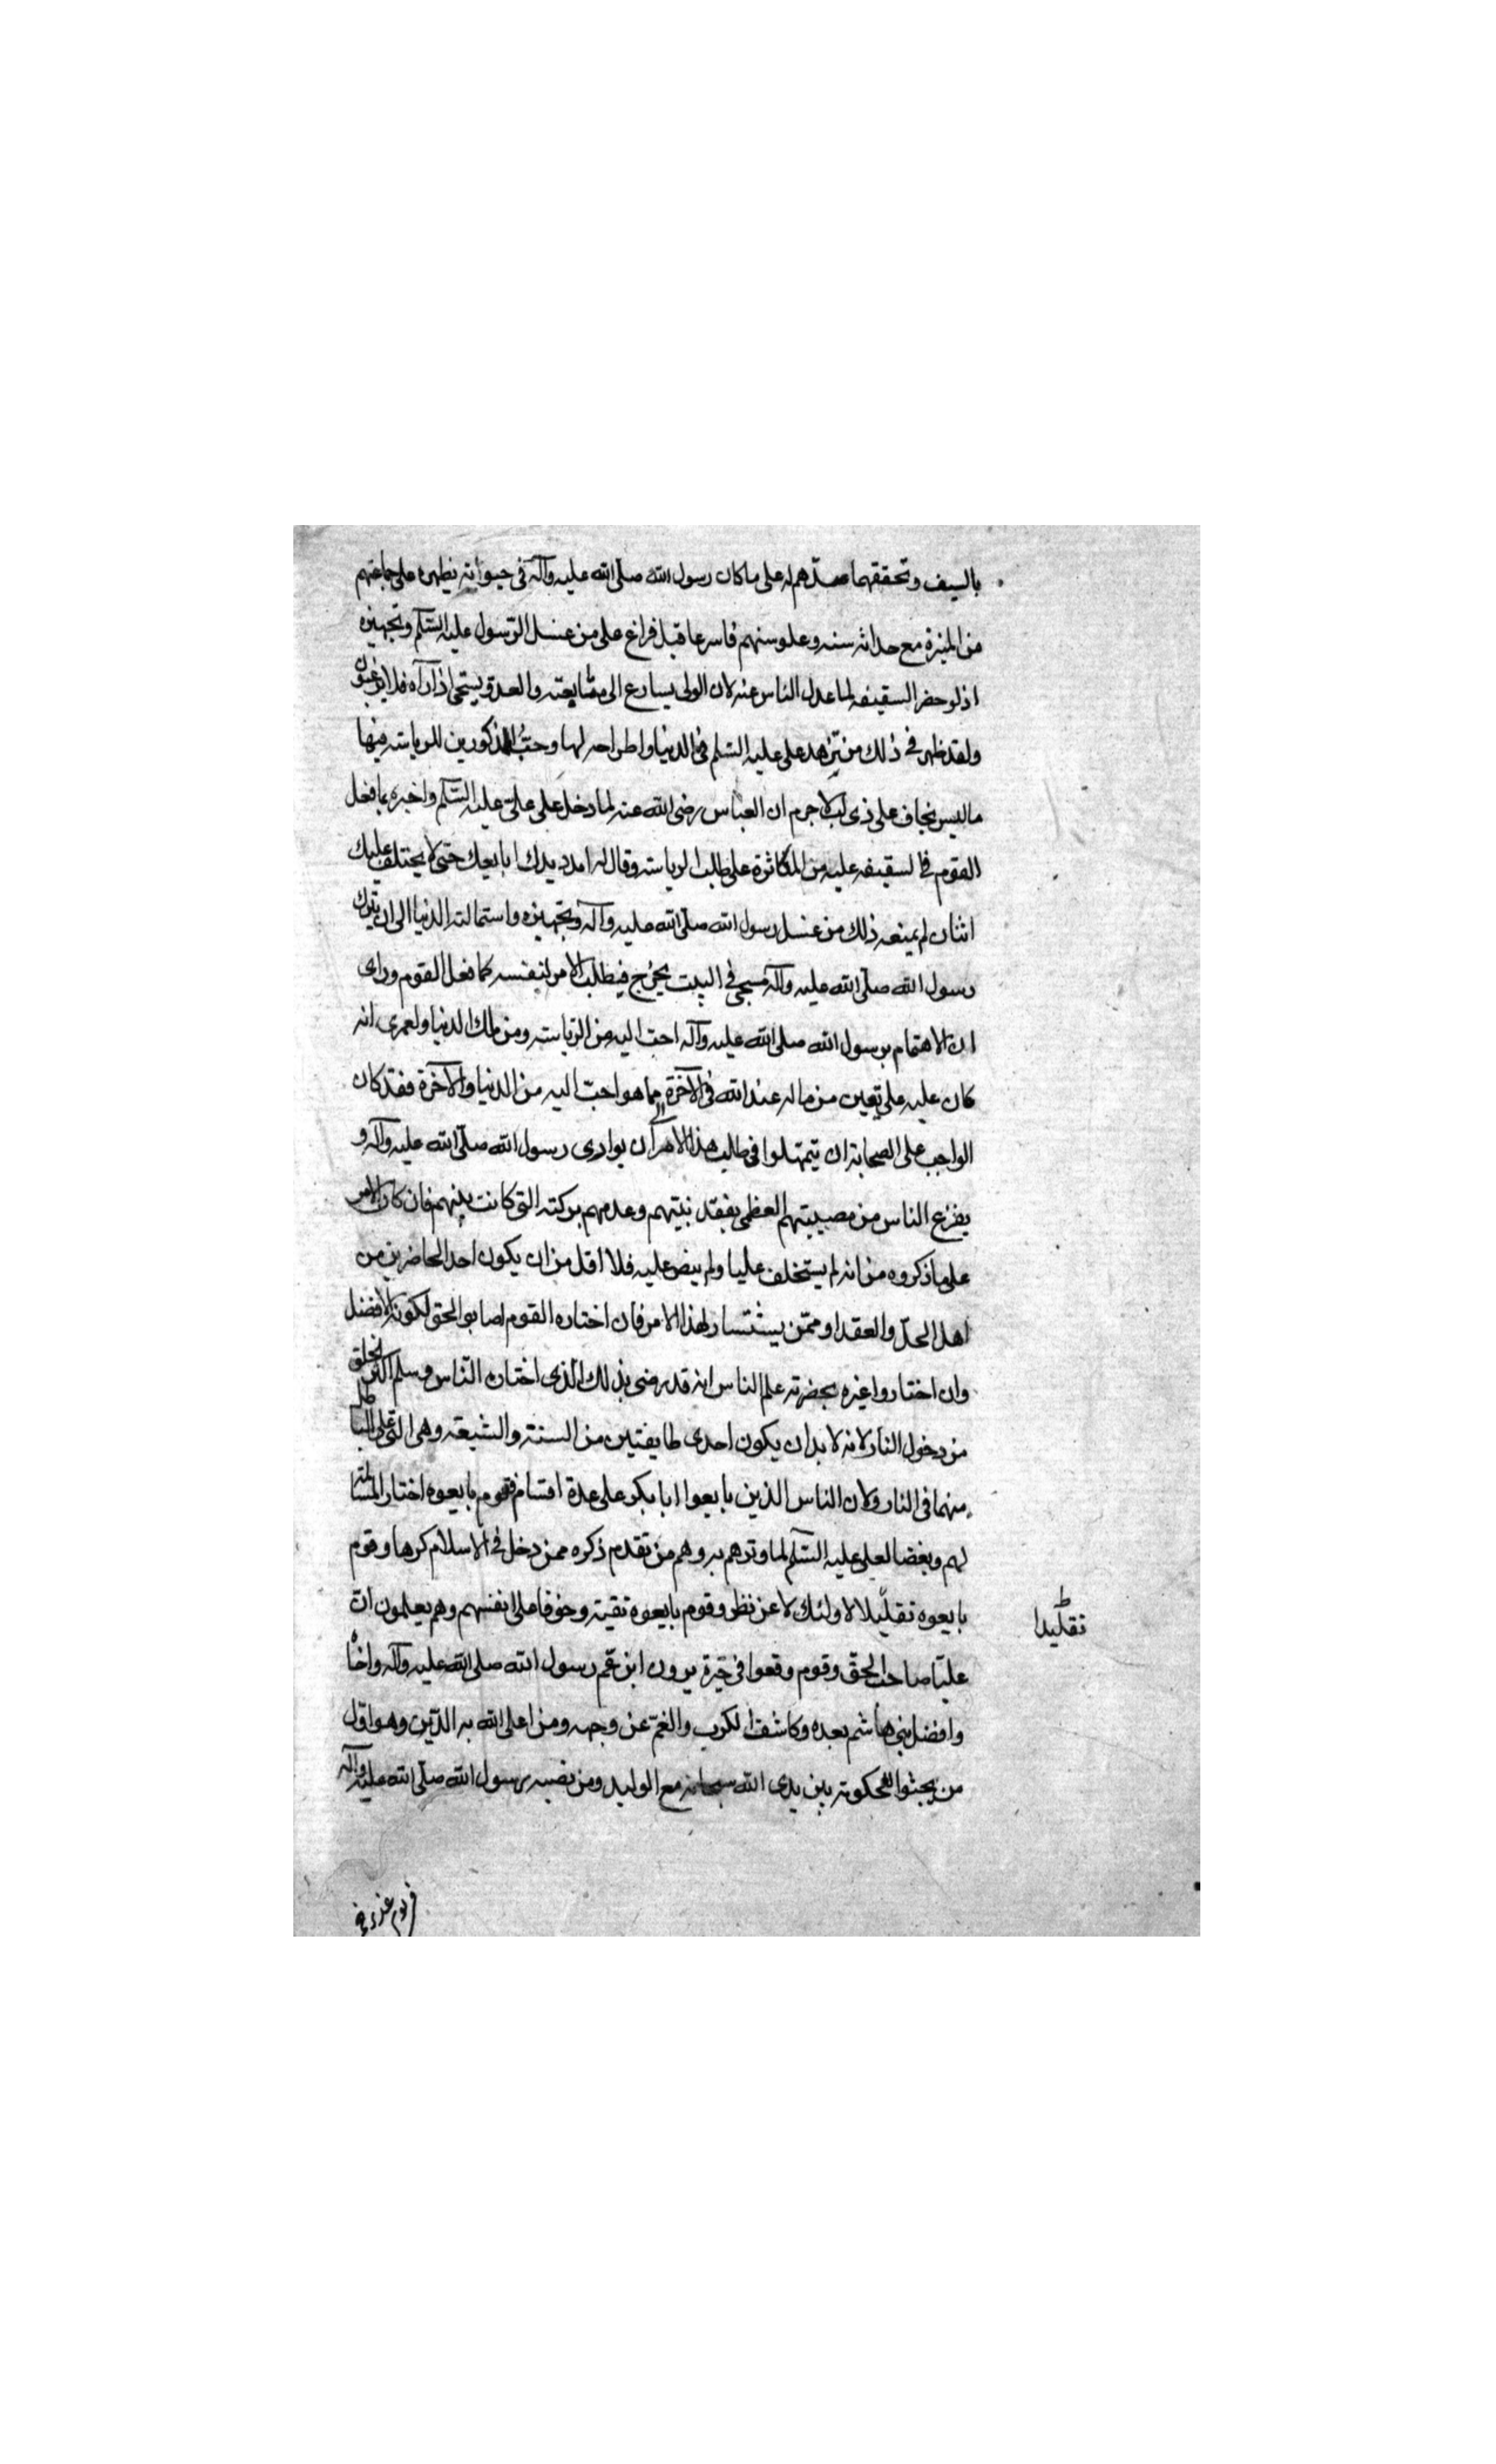 بالسيف وتحققهما حسدهم له على ما كان رسول الله صلّى الله عليه وآله فى حيوته يظهره على جماعتهم
من الميزة مع حداثة سنه وعلو سنهم فاسرعا قبل فراغ على من غسل الرّسول عليه السّلم وتجهيزه
اذ لو حضر السقيفه لما عدل الناس عنه لان الولى يسارع الى متابعته والعدو يستحى اذا رآه فلا يرغبون
ولقد ظهر فى ذلك من تزهد على عليه السّلم فى الدنيا واطراحه لها وحبّ المذكورين للرياسة فيها
ما ليس بخاف على ذى لب لا جرم ان العباس رضى الله عنه لما دخل على علىّ عليه السّلم واخبره بما فعل
القوم فى السقيفه عليه من المكاثرة على طلب الرياسة وقال له امدد يدك ابايعك حتى لا يختلف عليك
اثنان لم يمنعه ذلك من غسل رسول الله صلّى الله عليه وآله وتجهيزه واستمالته الدنيا الى ان يترك
رسول الله صلّى الله عليه وآله مسجى فى البيت يخرج فيطلب الامر لنفسه كما فعل القوم وراى
ان الاهتمام برسول الله صلى الله عليه وآله احب اليه من الرّياسة ومن ملك الدنيا ولعمرى انه
كان عليه على يقين من ما له عند الله فى الآخرة مما هو احبّ اليه من الدنيا والآخرة فقد كان
الواجب على الصحابة ان يتمهلوا فى طلب هذا الامر الى ان يوارى رسول الله صلّى الله عليه وآله و
يفزع الناس من مصيبتهم العظمى بفقد نبيهم وعدمهم بركته التى كانت بينهم فان كان الامر
على ما ذكروه من انه لم يستخلف عليا ولم ينص عليه فلا اقل من ان يكون احد الحاضرين من
اهل الحلّ والعقد او ممّن يستشار لهذا الامر فان اختاره القوم اصابوا الحق لكونه الافضل
وان اختاروا غيره بحضرته علم الناس انه قد رضى بذلك الذى اختاره النّاس وسلم اكثر الخلق
من دخول النار لانه لا بد ان يكون احدى طايفتين من السنة والشيعة وهى التى على الباطل
منهما فى النار ولان الناس الذين بايعوا ابا بكر على عدة اقسام فقوم بايعوه اختيار المسالمة
لهم وبغضا لعلى عليه السّلم لما وترهم به وهم من تقدم ذكره ممن دخل فى الاسلام كرها وقوم
بايعوه تقليلا لاولئك لا عن نظر وقوم بايعوه تقية وخوفا على انفسهم وهم يعلمون ان
تقليدا
عليّا صاحب الحقّ وقوم وقعوا فى حيرة يرون ابن عّم رسول الله صلى الله عليه وآله واخاه
وافضل بنى هاشم بعده وكاشف الكرب والغمّ عن وجهه ومن اعلى الله به الدّين وهو اوّل
من يجثوا للحكومة بين يدى الله سبحانه مع الوليد ومن نصبه رسول الله صلّى الله عليه وآله
يوم غدير خم